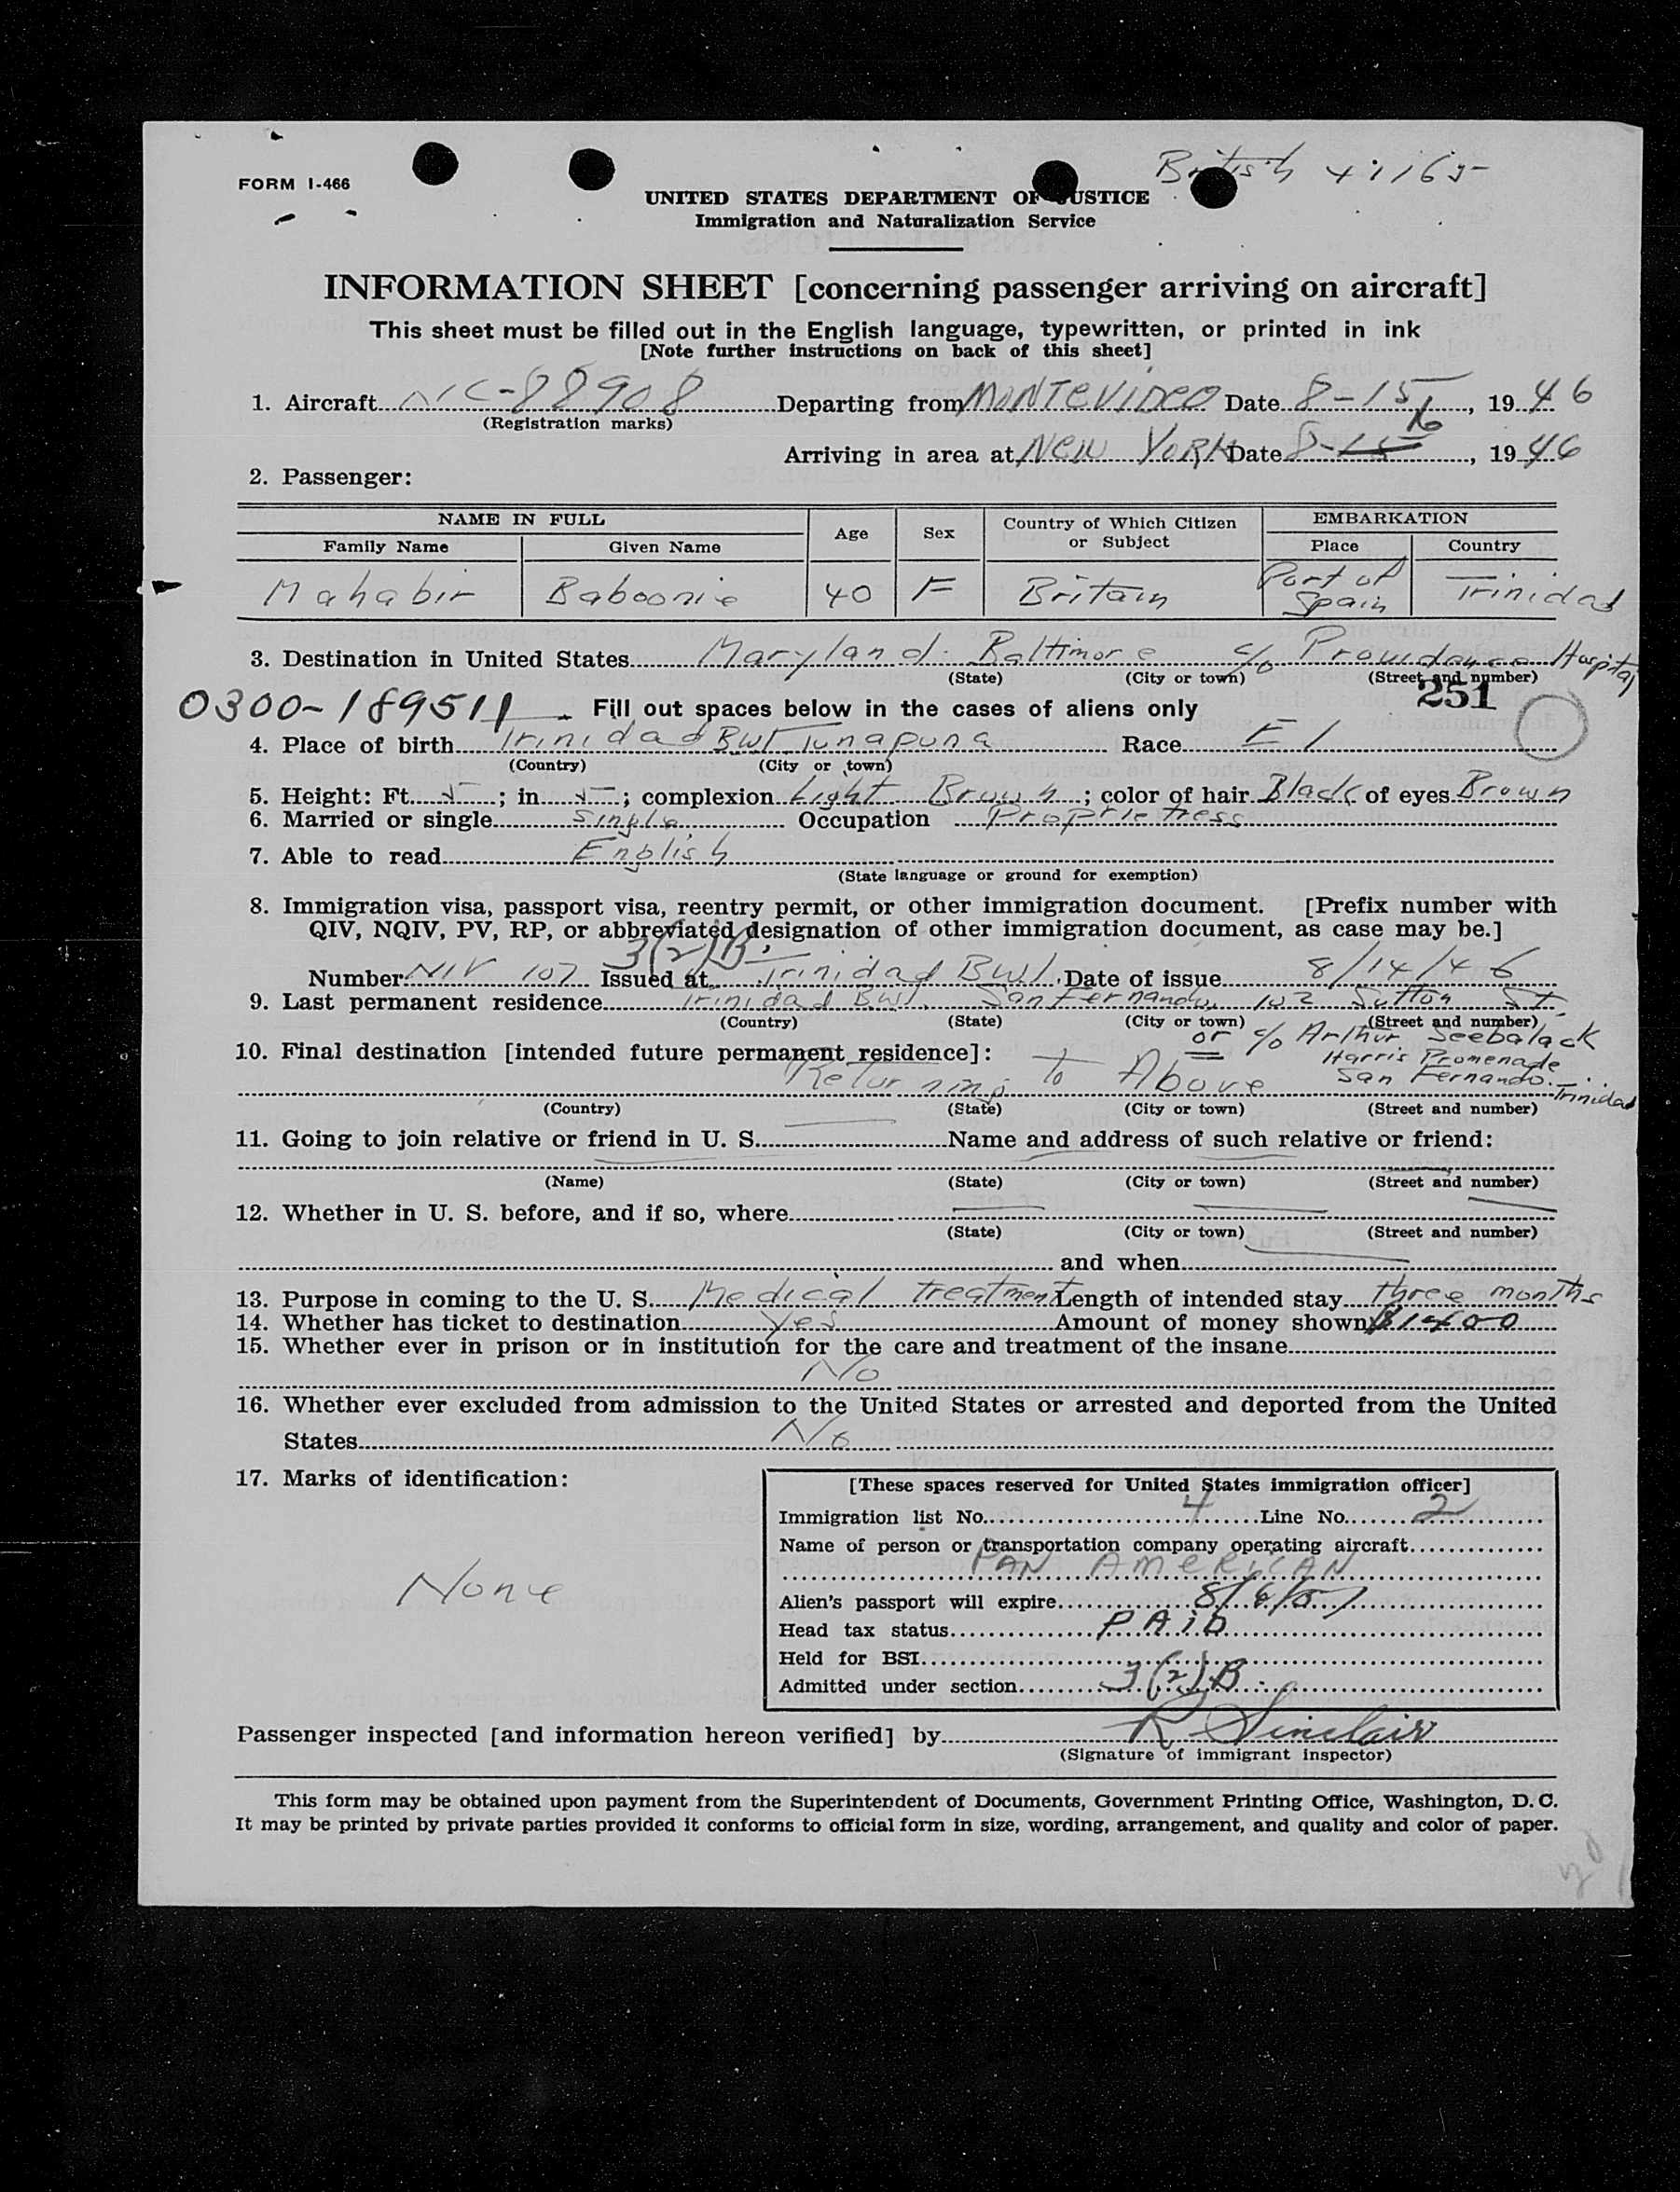 British 41165
FORM I-466
UNITED STATES DEPARTMENT OF JUSTICE
Immigration and Naturalization Service
INFORMATION SHEET [concerning passenger arriving on aircraft]
This sheet must be filled out in the English language, typewritten, or printed in ink
[Note further instructions on back of this sheet]
1. Aircraft NC-88908 Departing from MONTEVIDEO Date 8-15, 1946
(Registration marks)
16
Arriving in area at NEW YORK Date 8-15, 1946
2. Passenger:
NAME IN FULL Age Sex Country of Which Citizen or Subject EMBARKATION
Family Name Given Name Place Country
Mahabir Baboonie 40 F Britain Port of Spain Trinidad
3. Destination in United States Maryland Baltimore c/o Providence Hospital
(State) (City or town) (Street and number)
251
0300-189511 Fill out spaces below in the cases of aliens only
4. Place of birth Trinidad BWI Tunapuna Race E I
(Country) (City or town)
5. Height: Ft. 5; in 5; complexion Light Brown; color of hair Black of eyes Brown
6. Married or single Single Occupation Proprietress
7. Able to read English
(State language or ground for exemption)
8. Immigration visa, passport visa, reentry permit, or other immigration document. [Prefix number with
QIV, NQIV, PV, RP, or abbreviated designation of other immigration document, as case may be.]
3(2)B
Number NIV 107 Issued at Trinidad BWI Date of issue 8/14/46
9. Last permanent residence Trinidad BWI San Fernando 102 Sutton St.
(Country) (State) (City or town) (Street and number)
or c/o Arthur Seebalack
10. Final destination [intended future permanent residence]: Harris Promenade
Returning to Above San Fernando. Trinidad
(Country) (State) (City or town) (Street and number)
11. Going to join relative or friend in U. S. Name and address of such relative or friend:
(Name) (State) (City or town) (Street and number)
12. Whether in U. S. before, and if so, where
(State) (City or town) (Street and number)
and when
13. Purpose in coming to the U. S. Medical treatment Length of intended stay three months
14. Whether has ticket to destination Yes Amount of money shown $1400
15. Whether ever in prison or in institution for the care and treatment of the insane
No
16. Whether ever excluded from admission to the United States or arrested and deported from the United
States No
17. Marks of identification:
None
[These spaces reserved for United States immigration officer]
Immigration list No. 4 Line No. 2
Name of person or transportation company operating aircraft
PAN AMERICAN
Alien's passport will expire 8/6/51
Head tax status PAID
Held for BSI
Admitted under section 3(2)B
Passenger inspected [and information hereon verified] by R Sinclair
(Signature of immigrant inspector)
This form may be obtained upon payment from the Superintendent of Documents, Government Printing Office, Washington, D. C.
It may be printed by private parties provided it conforms to official form in size, wording, arrangement, and quality and color of paper.